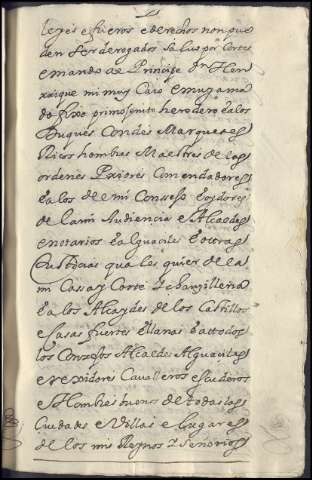 leyes e fueros e derechos non pue
den ser derogados salvo por Cortes
e mando a el Principe Dn Hen
rrique mi muy Caro e muy ama
do fixo primojenito heredero e a los
Duques Condes Marqueses
Ricos hombres Maestres de las
ordenes Priores Comendadores
e a los de el mi Consejo e oydores
de la mi Audiencia e Alcaldes
e notarios e alguaciles e otras
Justicias qualesquier de la
mi Cassa y Corte e chanzilleria
e a los Alcaydes de los Castillos
e Casas fuertes e llanas e a ttodos
los Consejos Alcaldes Alguaciles
e rexidores Cavalleros escuderos
e Hombres buenos de todas las
Ciudades e Villas e Lugares
de los mis Reynos e Señorios